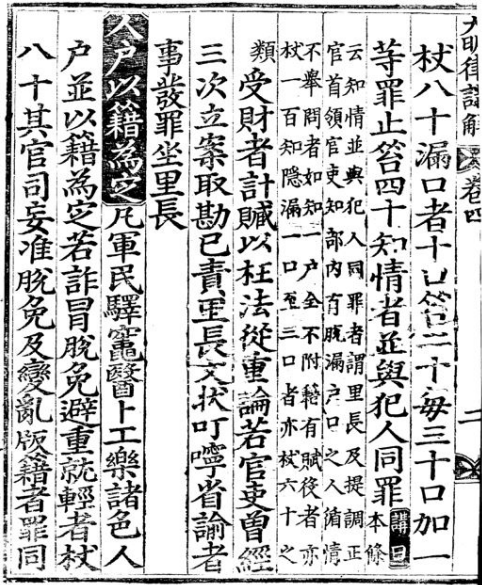 大明律講解 卷四 二
杖八十漏口者十口笞二十每三十口加一
等罪止笞四十知情者並與犯人同罪 講曰本條
云知情並與犯人同罪者謂里長及提調正
官首領官吏知部內有脫漏戶口之人循情
不舉問者如知一戶全不附籍有賦役者亦
杖一百知隱漏一口至三口者亦杖六十之
類 受財者計贓以枉法從重論若官吏曾經
三次立案取勘已責里長文狀叮嚀省諭者
事發罪坐里長
人户以籍為定 凡軍民驛竈醫卜工樂諸色人
户並以籍為定若詐冒脫免避重就輕者杖
八十其官司妄准脫免及變亂版籍者罪同